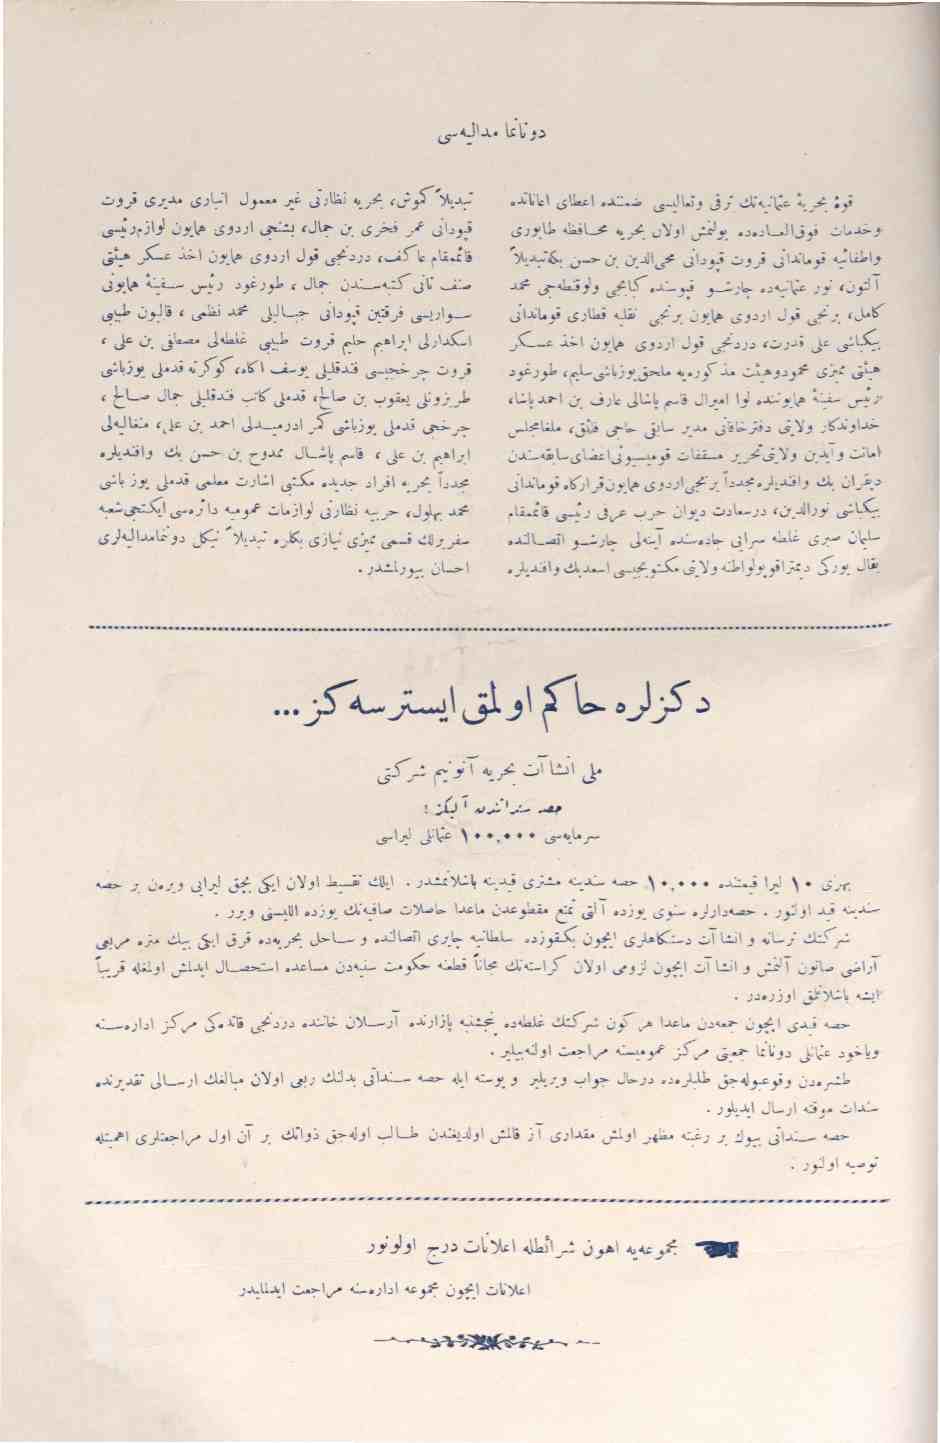 دونانما مداليه‌سى
قوۀ بحريۀ عثمانيه‌نك ترقى وتعاليسى ضمننده اعطاى اعاناتده
وخدمات فوق‌العـاده‌ده بولنمش اولان بحريه محـافظه طابورى
واطفائيه قوماندانى قروت قپودانى محى‌الدين بن حسن بكه تبديلاً
آلتون، نور عثمانيه‌ده چارشـو قپوسنده كبابجى ولوقنطه‌جى محمد
كامل، برنجى قول اردوى همايون برنجى نقليه قطارى قوماندانى
بيكباشى على قدرت، دردنجى قول اردوى همايون اخذ عسـكر
هيئتى مميزى محمود وهيئت مذكوره‌يه ملحق يوزباشى سليم، طورغود
رئيس سفينۀ همايوننده لوا اميرال قاسم پاشالى عارف بن احمد پاشا،
خداوندكار ولايتى دفترخاقانى مدير سابقى حاجى فائق، ملغا مجلس
امانت وآيدين ولايتى تحرير مسقفات قوميسيونى اعضاى سابقه‌سندن
ديقران بك وافنديلره مجدداً برنجى اردوى همايون قراركاه قوماندانى
بيكباشى نورالدين، درسعادت ديوان حرب عرفى رئيسى قائممقام
سليمان صبرى غلطه سرايى جاده‌سنده آينه‌لى چارشـو اتصـالنده
بقال يوركى ديمتراقوپولو اطنه ولايتى مكتوبجيسى اسعد بك وافنديلره
تبديلاً كموش، بحريه نظارتى غير معمول انبارى مديرى قروت
قپودانى عمر فخرى بن جمال، بشنجى اردوى همايون لوازم رئيسى
قائممقام عاكف، دردنجى قول اردوى همايون اخذ عسكر هيئتى
صنف ثانى كتبه‌سـندن جمال، طورغود رئيس سـفينۀ همايونى
سـواريسى فرقتين قپودانى جبـالیلى محمد نظمى، قاليون طبيبى
اسكدارلى ابراهيم حليم قروت طبيبى غلطه‌لى مصطفى بن على،
قروت چرخجيسى فندقليلى يوسف آكاه، كوكرته قدملى يوزباشى
طربزونلى يعقوب بن صالح، قدملى كاتب فندقليلى جمال صـالح،
چرخجى قدملى يوزباشى كمر ادرميـدلى احمد بن على، منغاليه‌لى
ابراهيم بن على، قاسم پاشـالى ممدوح بن حسن بك وافنديلره
مجدداً بحريه افراد جديده مكتبى اشارت معلمى قدملى يوزباشى
محمد بهلول، حربيه نظارتى لوازمات عموميه دائره‌سى ايكنجى شعبه
سفربرلك قسمى مميزى نيازى بكلره تبديلاً نيكل دونانما مداليه‌لرى
احسان بيورلمشدر.
دكزلره حاكم اولمق ايسترسه‌كز...
ملى انشاآت بحريه آنونيم شركتى
حصه سنداتندن آليكز:
سرمايه‌سى ١٠٠,٠٠٠ عثمانلى ليراسى
بهرى ١٠ ليرا قيمتنده ١٠,٠٠٠ حصه سندينه مشترى قيدينه باشلانمشدر. ايلك تقسيط اولان ايكى بچق ليرايى ويرەن بر حصه
سندينه قيد اولنور. حصه‌دارلره سنوى يوزده آلتى تمتع مقطوعدن ماعدا حاصلات صافيه‌نك يوزده اللیسنى ويرر.
شركتك ترسانه و انشاآت دستكاهلرى ايچون بكقوزده سلطانيه چايرى اتصالنده و سـاحل بحريه‌ده قرق ايكى بيك متره مربعى
آراضى صاتون آلنمش و انشاآت ايچون لزومى اولان كراسته‌نك مجاناً قطعنه حكومت سنيه‌دن مساعده استحصـال ايدلمش اولمغله قريباً
ايشه باشلانلمق اوزره‌در.
حصه قيدى ايچون جمعه‌دن ماعدا هر كون شركتك غلطه‌ده پنجشنبه بازارنده آرسـلان خاننده دردنجى قاتده‌كى مركز اداره‌سـنه
وياخود عثمانلى دونانما جمعيتى مركز عموميسنه مراجعت اولنه‌بيلير.
طشره‌دن وقوعبوله‌جق طلبلره‌ده درحال جواب ويريلير و پوسته ايله حصه سـنداتى بدلنك ربعى اولان مبالغك ارسـالى تقديرنده
سندات موقته ارسال ايديلور.
حصه سـنداتى بيوك بر رغبته مظهر اولمش مقدارى آز قالمش اولديغندن طـالب اوله‌جق ذواتك بر آن اول مراجعتلرى اهميتله
توصيه اولنور.
مجموعه‌يه اهون شرائطله اعلانات درج اولونور
اعلانات ايچون مجموعه اداره‌سنه مراجعت ايدلمليدر